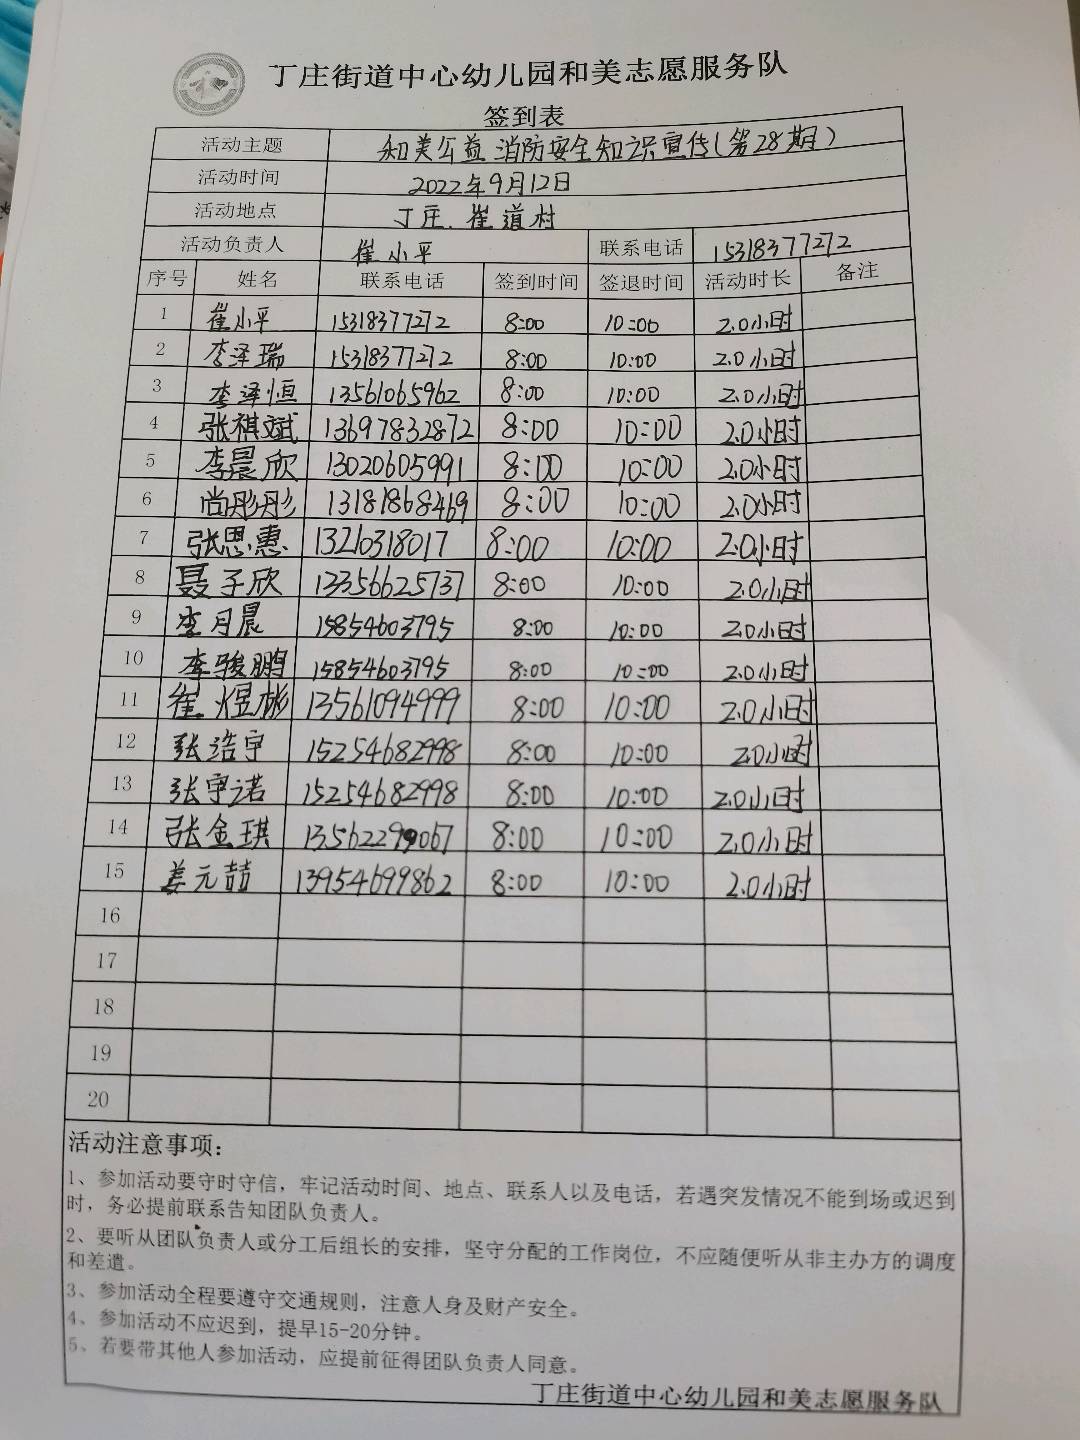 丁庄街道中心幼儿园和美志愿服务队
签到表
活动主题 和美公益 消防安全知识宣传(第28期)
活动时间 2022年9月12日
活动地点 丁庄.崔道村
活动负责人 崔小平 联系电话 15318377272
序号 姓名 联系电话 签到时间 签退时间 活动时长 备注
1 崔小平 15318377272 8:00 10:00 2.0小时
2 李泽瑞 15318377272 8:00 10:00 2.0小时
3 李泽恒 13561065962 8:00 10:00 2.0小时
4 张祺斌 13697832872 8:00 10:00 2.0小时
5 李晨欣 13020605991 8:00 10:00 2.0小时
6 尚彤彤 13181868469 8:00 10:00 2.0小时
7 张思惠 13210318017 8:00 10:00 2.0小时
8 聂子欣 13356625737 8:00 10:00 2.0小时
9 李月晨 15854603795 8:00 10:00 2.0小时
10 李骏鹏 15854603795 8:00 10:00 2.0小时
11 崔煜彬 13561094999 8:00 10:00 2.0小时
12 张浩宇 15254682998 8:00 10:00 2.0小时
13 张宇诺 15254682998 8:00 10:00 2.0小时
14 张金琪 13562299067 8:00 10:00 2.0小时
15 姜元喆 13954699862 8:00 10:00 2.0小时
16
17
18
19
20
活动注意事项:
1、参加活动要守时守信，牢记活动时间、地点、联系人以及电话，若遇突发情况不能到场或迟到
时，务必提前联系告知团队负责人。
2、要听从团队负责人或分工后组长的安排，坚守分配的工作岗位，不应随便听从非主办方的调度
和差遣。
3、参加活动全程要遵守交通规则，注意人身及财产安全。
4、参加活动不应迟到，提早15-20分钟。
5、若要带其他人参加活动，应提前征得团队负责人同意。
丁庄街道中心幼儿园和美志愿服务队